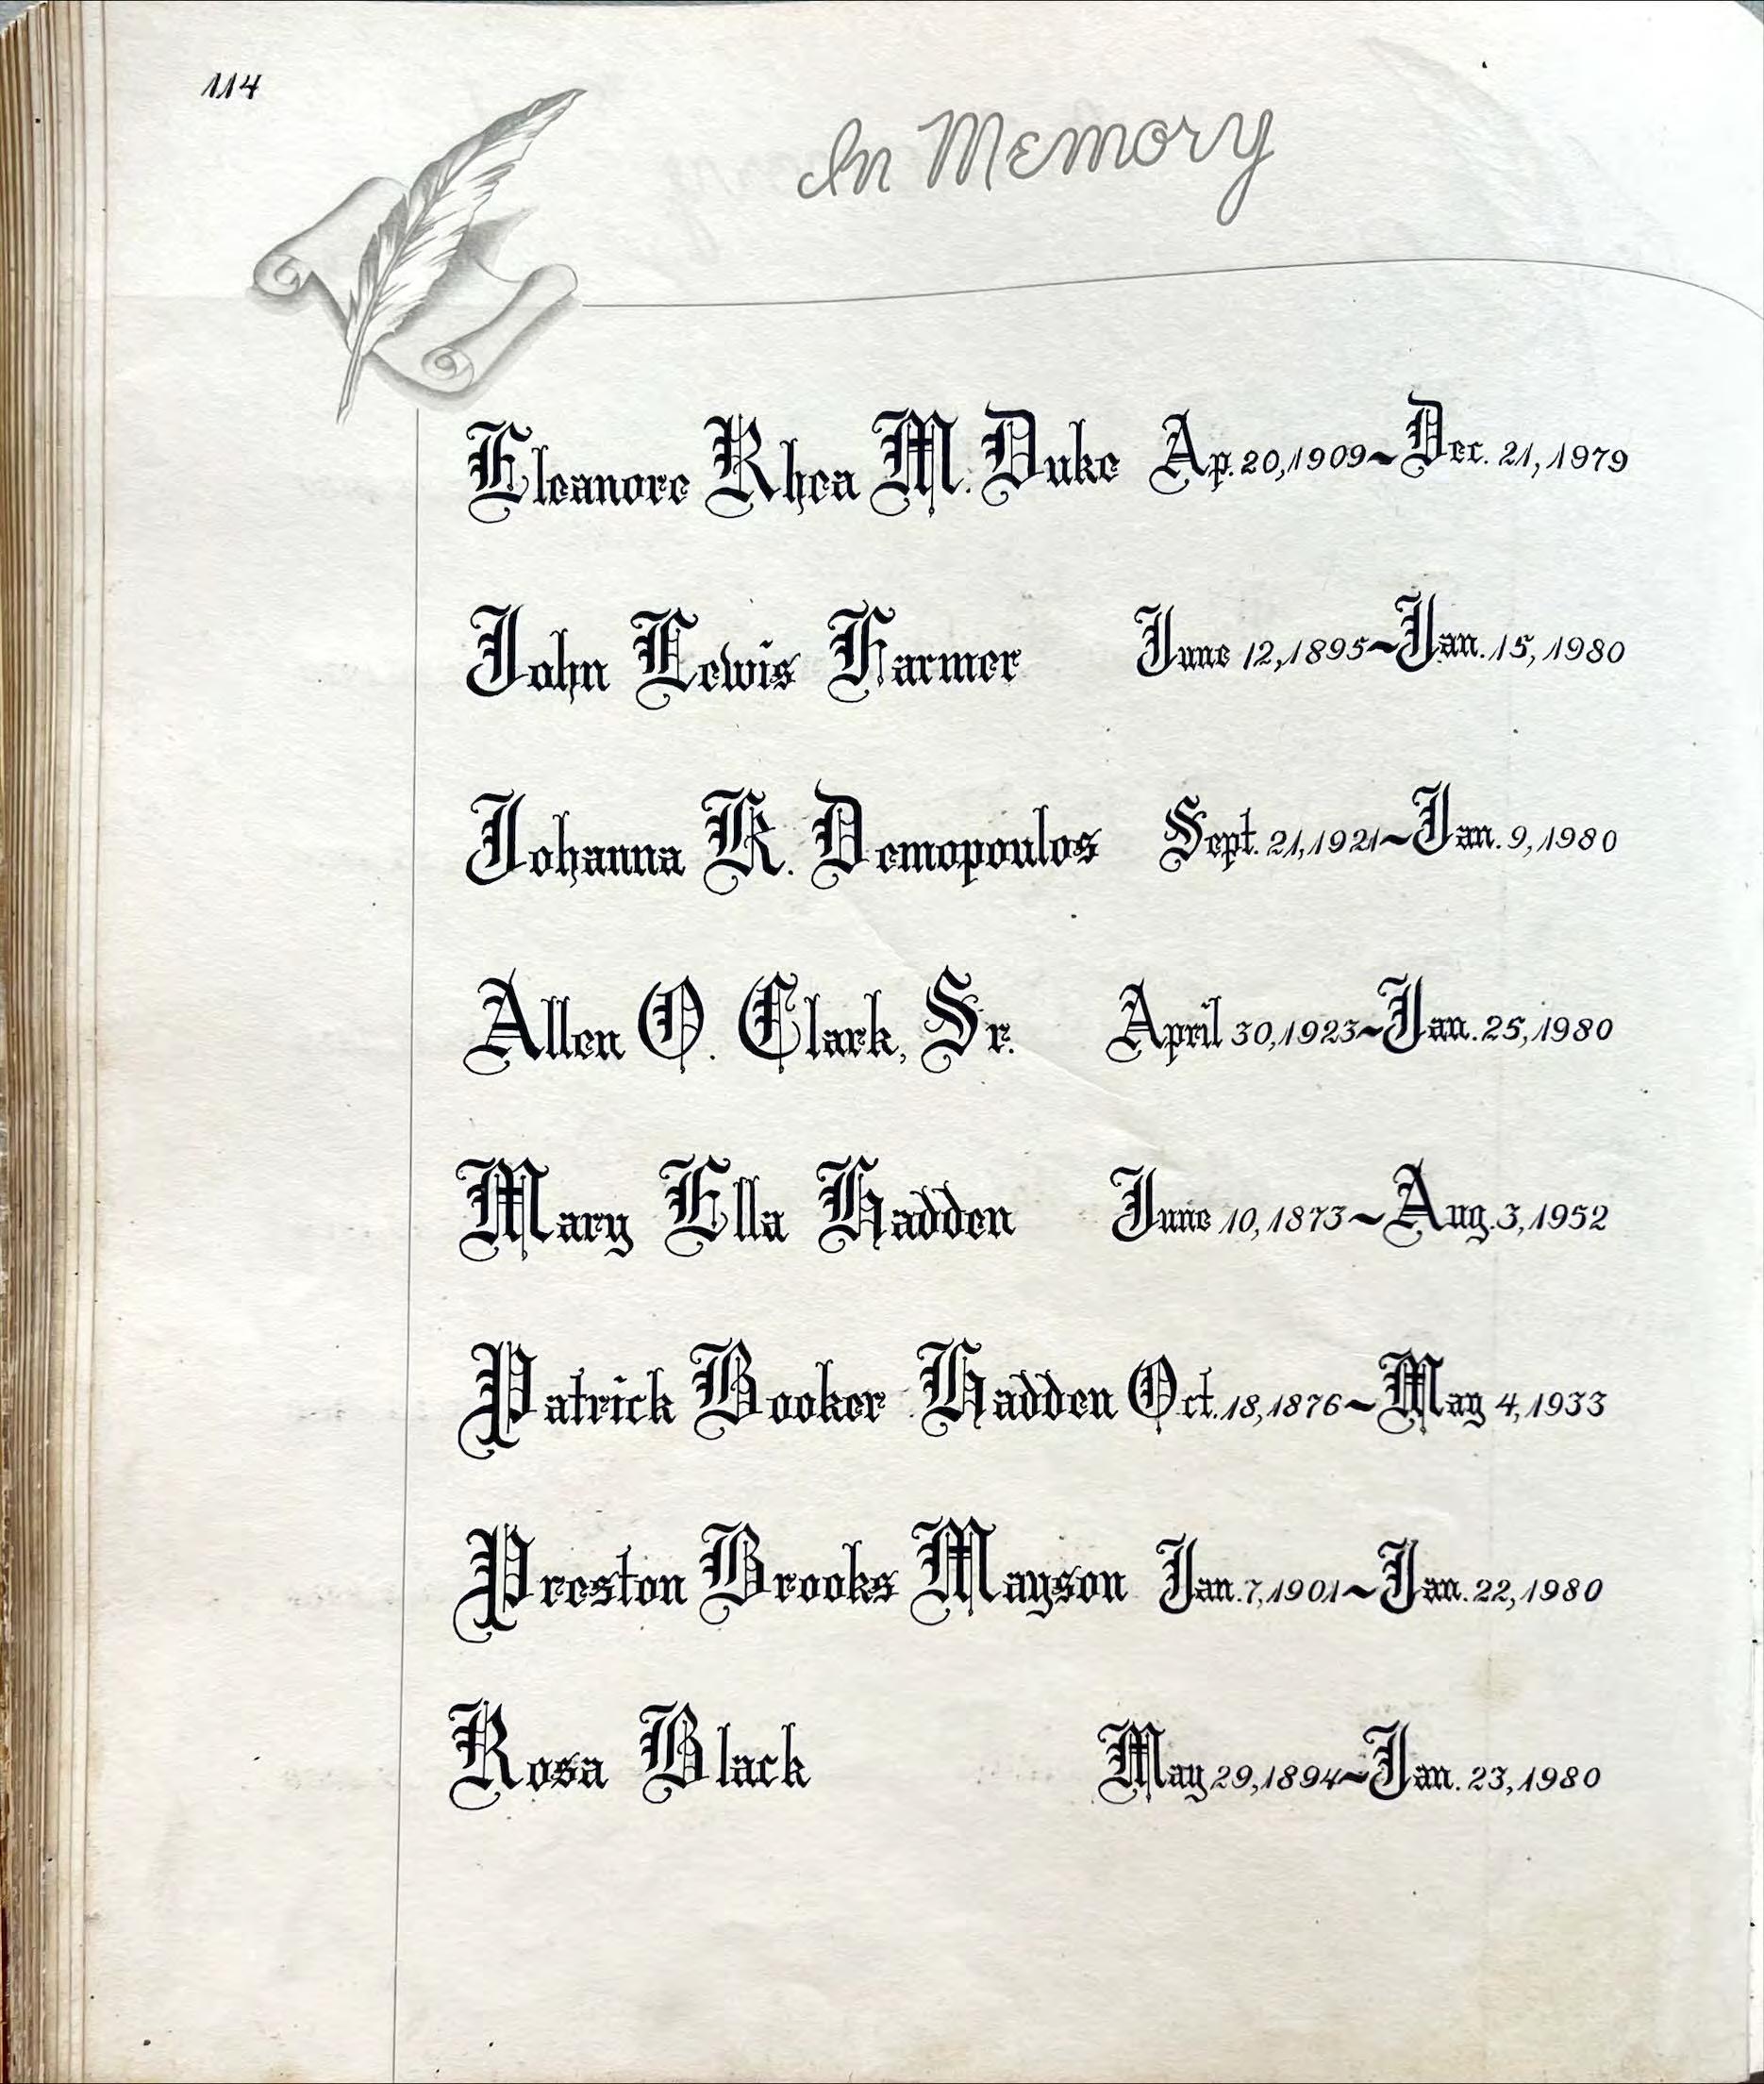 114
In Memory
Eleanore Rhea M. Duke Ap. 20, 1909~Dec. 21, 1979
John Lewis Harmer June 12, 1895~Jan. 15, 1980
Johanna K. Demopoulos Sept. 21, 1921~Jan. 9, 1980
Allen O. Clark, Sr. April 30, 1923~Jan. 25, 1980
Mary Ella Hadden June 10, 1873~Aug. 3, 1952
Patrick Booker Hadden Oct. 18, 1876~May 4, 1933
Preston Brooks Mayson Jan. 7, 1901~Jan. 22, 1980
Rosa Black May 29, 1894~Jan. 23, 1980